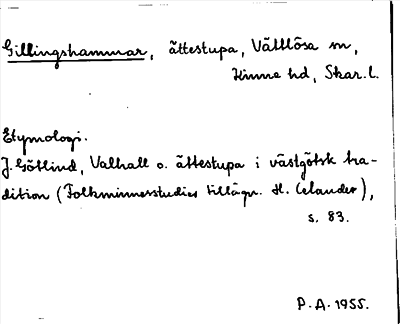 Gillingshammar, ättestupa, Vättlösa sn,
Kinne hd, Skar. l.
Etymologi.
J. Götlind, Valhall o. ättestupa i västgötsk tra-
dition (Folkminnesstudier tillägn. H. Celander),
s. 83.
P. A. 1955.